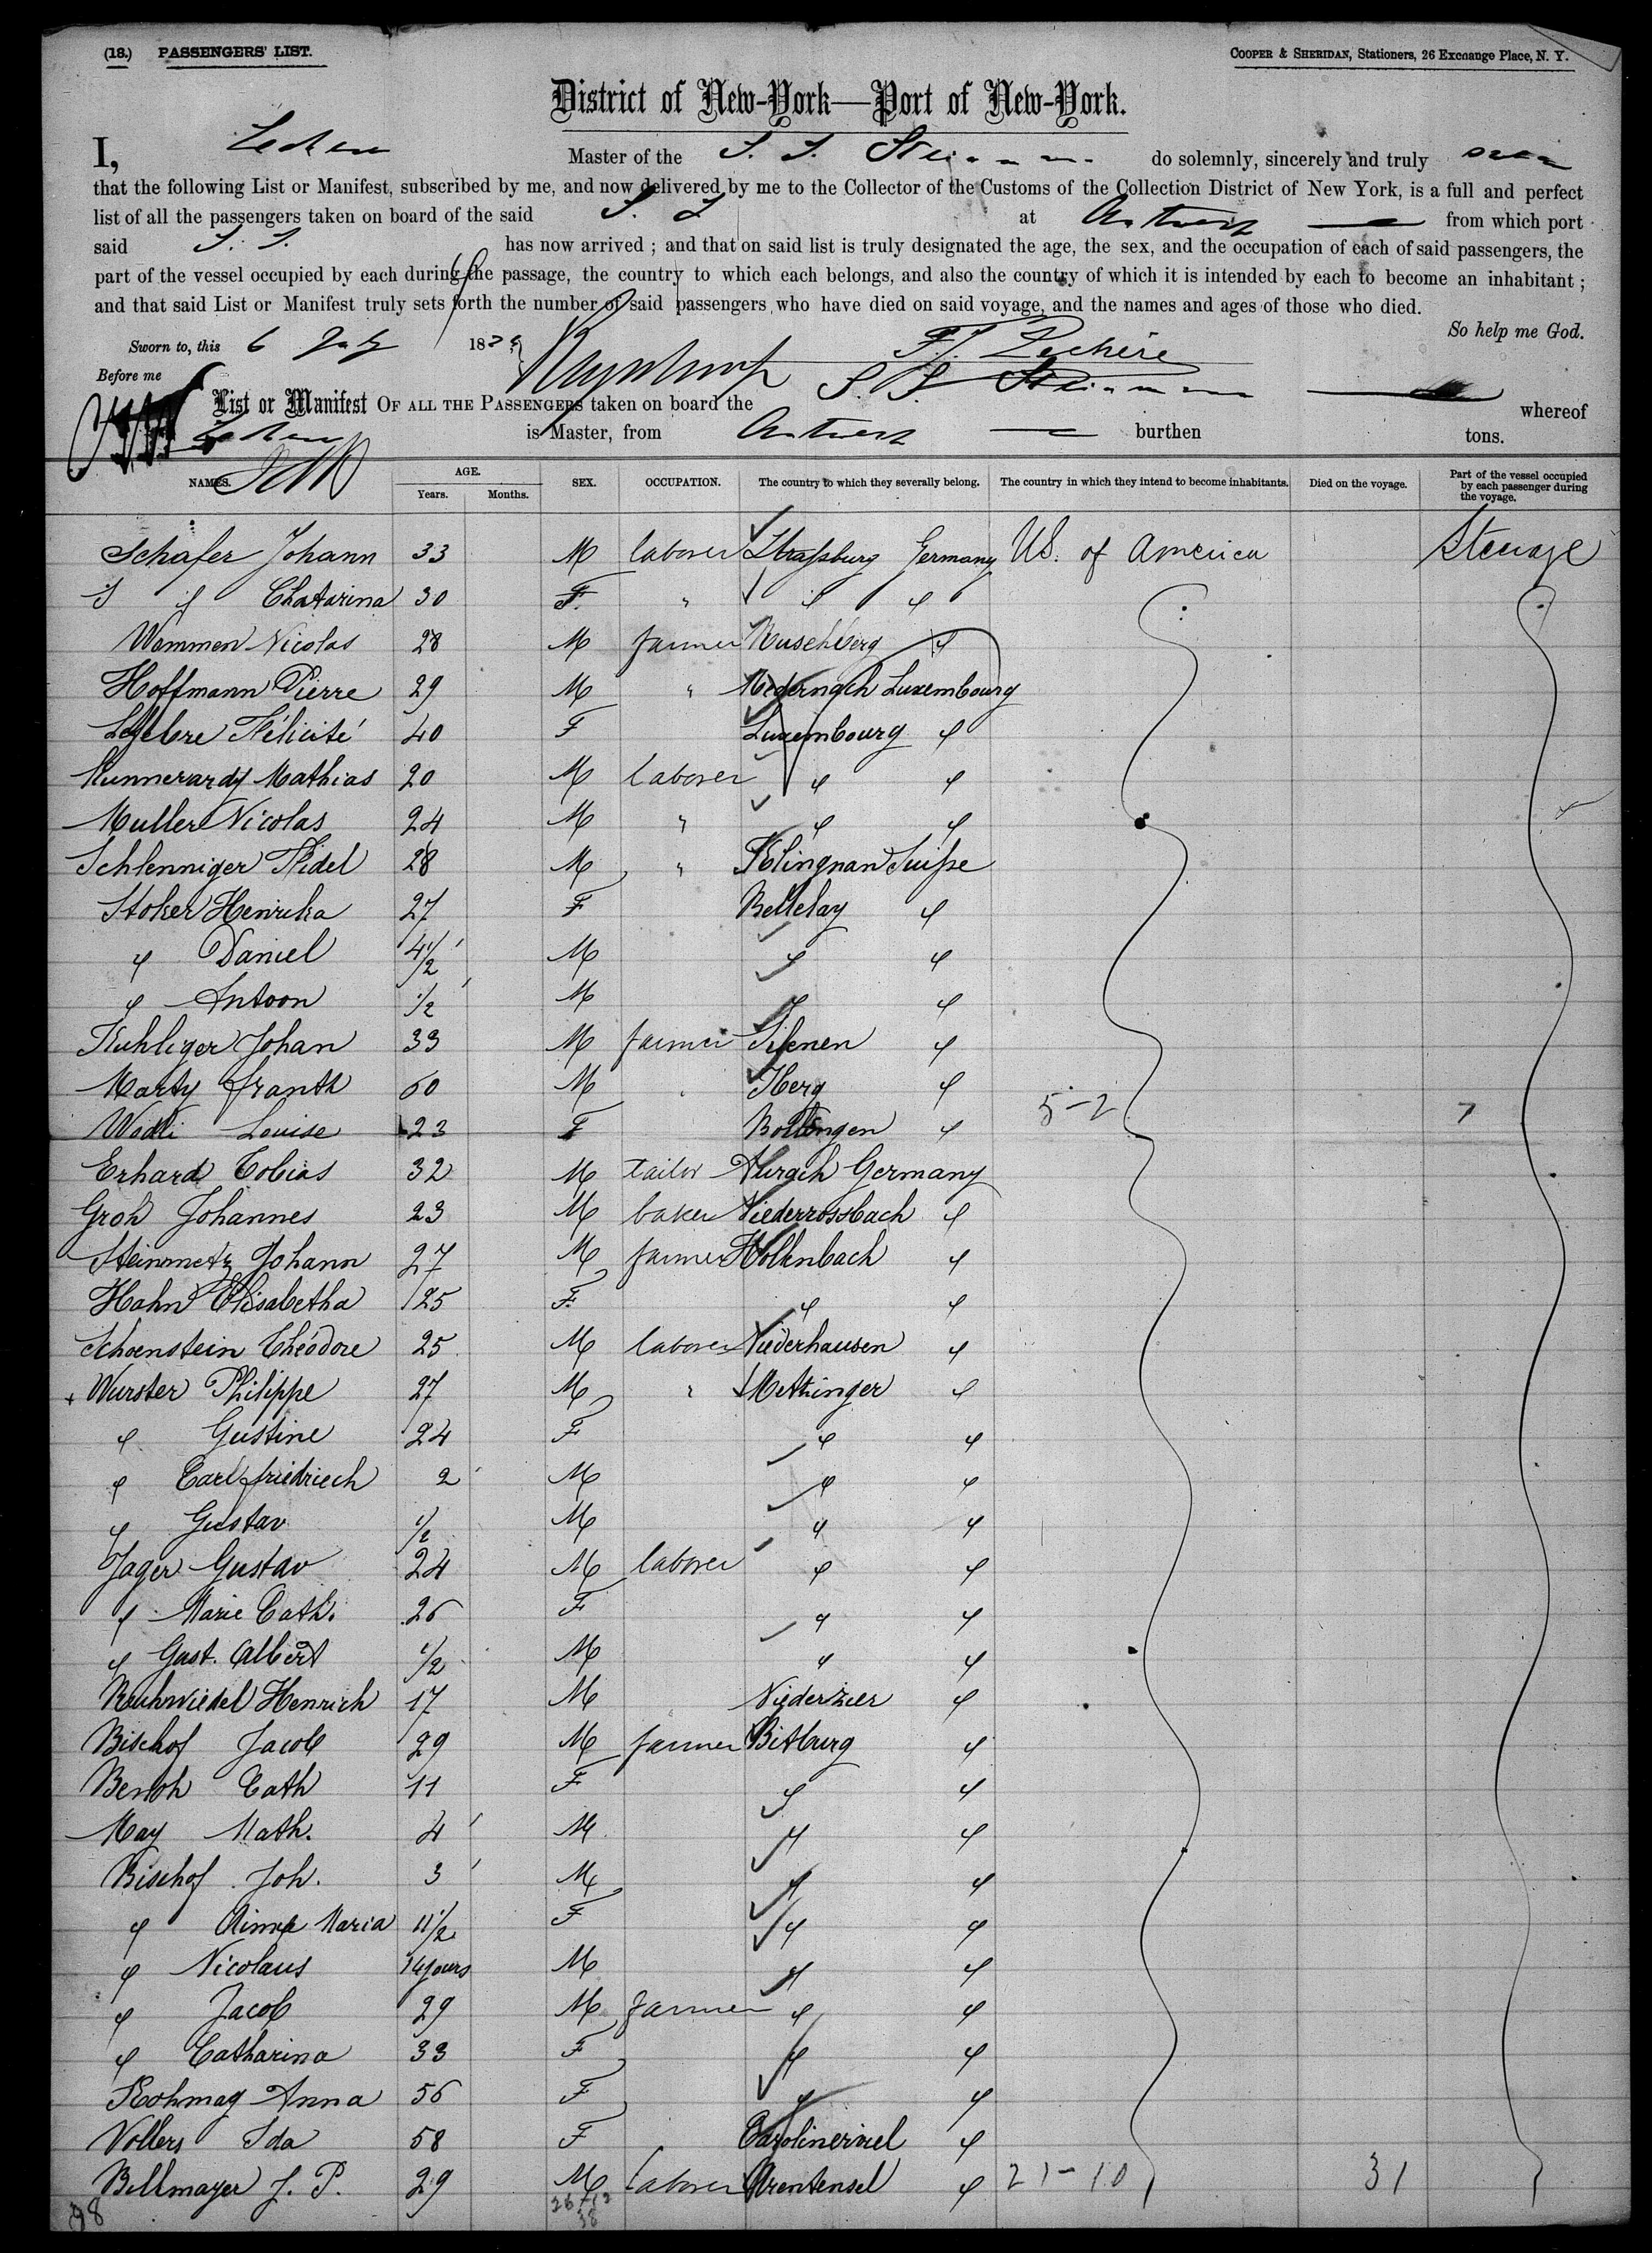 (18.) PASSENGERS' LIST. COOPER & SHERIDAN, Stationers, 26 Exchange Place, N. Y.
District of New-York—Port of New-York.
I, Master of the S. S. do solemnly, sincerely and truly
that the following List or Manifest, subscribed by me, and now delivered by me to the Collector of the Customs of the Collection District of New York, is a full and perfect
list of all the passengers taken on board of the said S. S. at Antwerp from which port
said S. S. has now arrived ; and that on said list is truly designated the age, the sex, and the occupation of each of said passengers, the
part of the vessel occupied by each during the passage, the country to which each belongs, and also the country of which it is intended by each to become an inhabitant ;
and that said List or Manifest truly sets forth the number of said passengers who have died on said voyage, and the names and ages of those who died.
So help me God.
Sworn to, this 6 July 18
Before me S. S.
List or Manifest OF ALL THE PASSENGERS taken on board the whereof
is Master, from Antwerp burthen tons.
NAMES. AGE. Years. Months. SEX. OCCUPATION. The country to which they severally belong. The country in which they intend to become inhabitants. Died on the voyage. Part of the vessel occupied by each passenger during the voyage.
Schafer Johann 33 M laborer Straßburg Germany US. of America Steerage
" " Chatarina 30 F " " "
Wammen Nicolas 28 M farmer "
Hoffmann Pierre 29 M " Medernach Luxembourg
Lefebre Félicité 40 F Luxembourg "
Mathias 20 M laborer " "
Muller Nicolas 24 M " " "
Schlenniger Fidel 28 M " Klingnan Suiße
Stoker Henrika 27 F Bellelay "
" Daniel 4 1/2 M " "
" Antoon 1/2 M " "
Johan 33 M farmer Silenen "
Marty frantz 60 M " Iberg "
Louise 23 F " 5-2 7
Erhard Tobias 32 M tailor Germany
Groh Johannes 23 M baker Niederrossbach "
Steinmetz Johann 27 M farmer "
Hahn Elisabetha 25 F " "
Schoenstein Théodore 25 M laborer Niederhausen "
+ Wurster Philippe 27 M " Mettinger "
" Gustine 24 F " "
" Carl friedriech 2 M " "
" Gustav 1/2 M " "
Jager Gustav 24 M laborer " "
" Marie Cath. 26 F " "
" Gust. Albert 1/2 M " "
Henrich 17 M Niederzier "
Bischof Jacob 29 M farmer Bitburg "
Cath 11 F " "
May Math. 4 M " "
Bischof Joh. 3 M " "
" Maria 11/2 F " "
" Nicolaus 14 jours M " "
" Jacob 29 M farmer " "
" Catharina 33 F " "
Anna 56 F " "
Vollers Ida 58 F "
Bellmayer J. P. 29 M laborer " 21-10 31
38 26/12
38